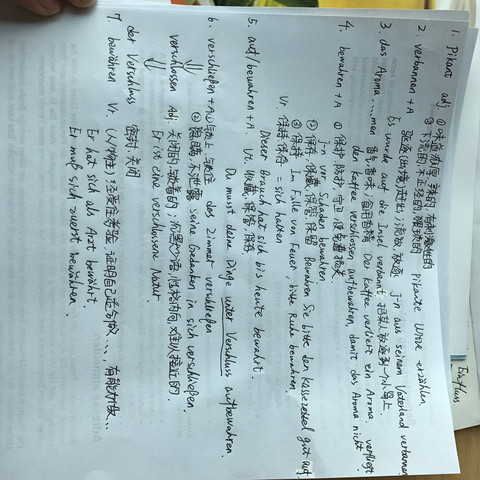 1. Pikant adj. ①味道有点辛辣的，有刺激性的
②不完的，不正经的，猥琐的 Pikante Witze erzählen
2. verbannen + A 驱逐(出境)赶出；流放，放逐 j-n aus seinem Vaterland verbannen
Es wurde auf die Insel verbannt. 把某人放逐到一个岛上
3. das Aroma, ... -men 香气，香味；食用香精 Der Kaffee verliert ein Aroma. verfliegt
den Kaffee verschlossen aufbewahren, damit das Aroma nicht
4. bewahren + A ① 保护，防护，守卫，使免遭损失
j-n vor Schaden bewahren
② 保存，保藏，保管，保留 Bewahren Sie bitte den Kassezettel gut auf.
③ 保持 Im Falle von Feuer bitte Ruhe bewahren
Vi. 保持，保存 = sich halten
Dieser Brauch hat sich bis heute bewahrt.
5. auf/bewahren + A Vt. 收藏，保管，保存
Du musst deine Dinge unter Verschluss aufbewahren.
6. verschließen + A ①锁上，锁住 das Zimmer verschließen
②隐瞒，不泄露 seine Gedanken in sich verschließen
verschlossen Adj 关闭的，锁着的；沉默少语，性格内向，难以接近的
Er ist eine verschlossene Natur.
der Verschluss 密封，关闭
7. bewähren Vr. (人/物主) 经受住考验，证明自己适合做...，有能力做...
Er hat sich als Arzt bewährt.
Er muß sich zuerst bewähren.
Einfluss